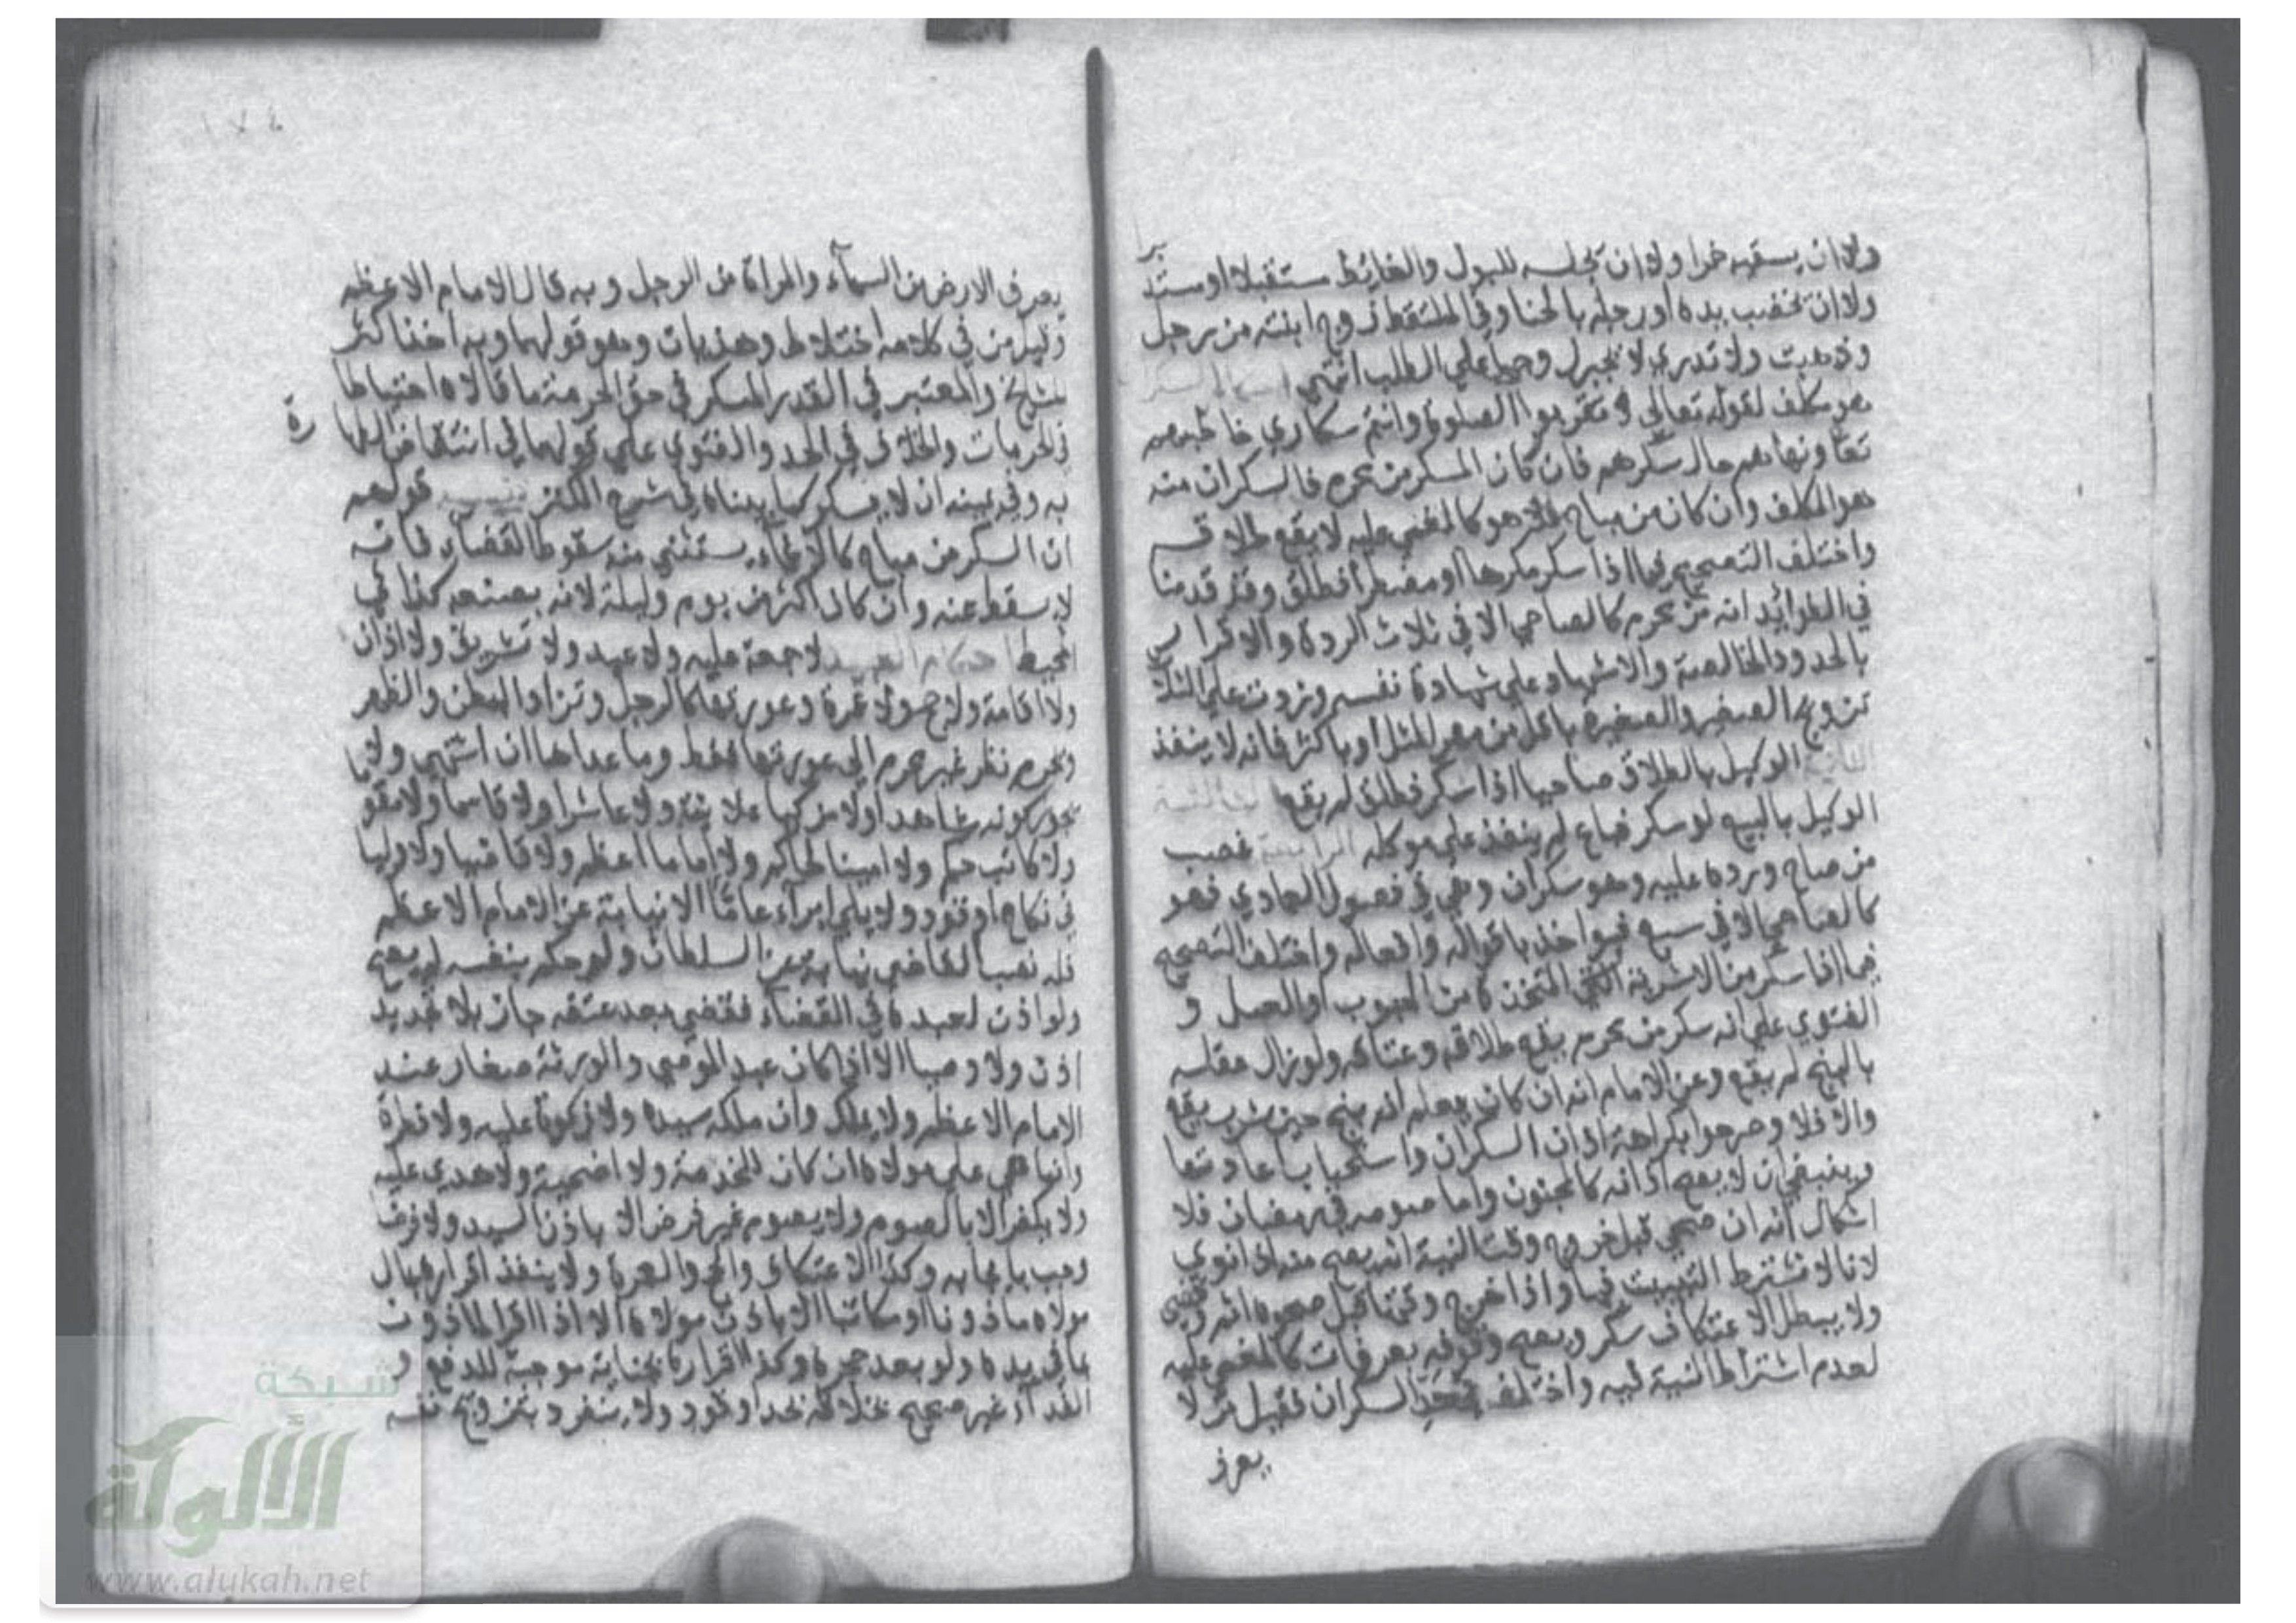 ولا ان يسقيه خمرا ولا ان يجلسه للبول والغائط مستقبلا او مستد
برا
ولا ان تخضب يده او رجله بالحنا وفي الملتقط زوج ابنته من رجل
وذهبت ولا تدري لا يجبر زوجها علي الطلب انتهي احكام السكران
هو مكلف لقوله تعالي لا تقربوا الصلوة وانتم سكاري خاطبهم
تعا ونهاهم حال سكرهم فان كان السكر من محرم فالسكران منه
هو المكلف وان كان من مباح فلا هو كالمغمي عليه لا يقع طلاقه
واختلف التصحيح فيما اذا سكر مكرها او مضطرا فطلق وقد قدمنا
في الفوائد انه من محرم كالصاحي الا في ثلاث الردة والاقرار
بالحدود الخالصة والاشهاد علي شهادة نفسه وزدت علي الثلاث
تزويج الصغير والصغيرة باقل من مهر المثل او باكثر فانه لا ينفذ
الثانية الوكيل بالطلاق صاحيا اذا سكر فطلق لم يقع الثالثة
الوكيل بالبيع لو سكر فباع لم ينفذ علي موكله الرابعة غصب
من صاح ورده عليه وهو سكران وهي في فصول العمادي فهو
كالصاحي الا في سبع فيواخذ باقواله وافعاله واختلف التصحيح
فيما اذا سكر من الاشربة التي المتخذة من الحبوب او العسل و
الفتوي علي انه سكر من محرم يقع طلاقه وعتاقه ولو زال عقله
بالبنج لم يقع وعن الامام انه ان كان يعلم انه بنج حين شرب يقع
والا فلا وصرحوا بكراهة اذان السكران واستحباب اعادتها
وينبغي ان لا يصح اذانه كالمجنون واما صومه في رمضان فلا
اشكال انه ان صحي قبل خروج وقت النية انه يصح منه اذا نوي
لانا لا نشترط التبييت فيها واذا خرج وقتها قبل صحوه اثم وقضي
ولا يبطل الاعتكاف سكر ويصح وقوفه بعرفات كالمغمي عليه
لعدم اشتراط النية فيه واختلف في حد السكران فقيل من لا
يعرف
١٧٤
يعرف الارض من السماء والمراة من الرجل وبه قال الامام الاعظم
وقيل من في كلامه اختلاط وهذيان وهو قولهما وبه اخذ اكثر
المشايخ والمعتبر في القدر المسكر في حق الحرمة ما قالاه احتياطا
في الحرمات والخلاف في الحد والفتوي علي قولهما في انتقاض الطها
رة
به وفي يمينه ان لا يسكر كما بيناه في شرح الكنز تنبيه قولهم
ان السكر من مباح كالاغماء يستثني منه سقوط القضاء فانه
لا يسقط عنه وان كان اكثر من يوم وليلة لانه بصنعه كذا في
المحيط احكام العبيد لا جمعة عليه ولا عيد ولا تشريق ولا اذان
ولا اقامة ولا حج ولا عمرة وعورتها كالرجل وتزاد البطن والظهر
ويحرم نظر غير محرم الي عورتها فقط وما عداها ان اشتهي ولا
يجوز كونه شاهدا ولا مزكيا علانية ولا عاشرا ولا قاسما ولا مقوما
ولا كاتب حكم ولا امينا لحاكم ولا اماما اعظم ولا قاضيا ولا وليا
في نكاح او قود ولا يلي امرا عاما الا نيابة عن الامام الاعظم
فله نصب القاضي نيابة عن السلطان ولو حكم بنفسه لم يصح
ولو اذن لعبده في القضاء فقضي بعد عتقه جاز بلا تجديد
اذن ولا وصيا الا اذا كان عبد الموصي والورثة صغار عند
الامام الاعظم ولا يملك وان ملكه سيده ولا زكوة عليه ولا فطرة
وانما هي علي مولاه ان كان للخدمة ولا اضحية ولا هدي عليه
ولا يكفر الا بالصوم ولا يصوم غير فرض الا باذن السيد ولا فرضا
وجب بايجابه وكذا الاعتكاف والحج والعمرة ولا ينفذ اقراره بمال
مولاه ماذونا او مكاتبا الا باذن مولاه الا اذا اقر الماذون
بما في يده ولو بعد حجره وكذا اقراره بجناية موجبة للدفع و
الفداء غير صحيح بخلافه بحد او قود ولا ينفرد بتزويج نفسه
شبكة
الألوكة
www.alukah.net